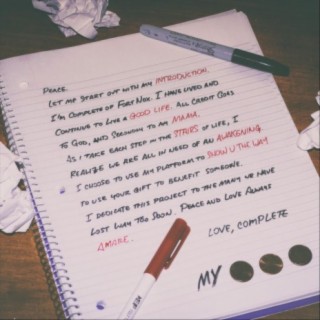 PEACE.
LET ME START OUT WITH MY INTRODUCTION.
I'M COMPLETE OF FORT NOX. I HAVE LIVED AND
CONTINUE TO LIVE A GOOD LIFE. ALL CREDIT GOES
TO GOD, AND SECONDLY TO MY MAMA.
AS I TAKE EACH STEP IN THE STAIRS OF LIFE, I
REALIZE WE ARE ALL IN NEED OF AN AWAKENING.
I CHOOSE TO USE MY PLATFORM TO SHOW U THE WAY
TO USE YOUR GIFT TO BENEFIT SOMEONE.
I DEDICATE THIS PROJECT TO THE MANY WE HAVE
LOST WAY TOO SOON. PEACE AND LOVE ALWAYS
LOVE, COMPLETE
MY